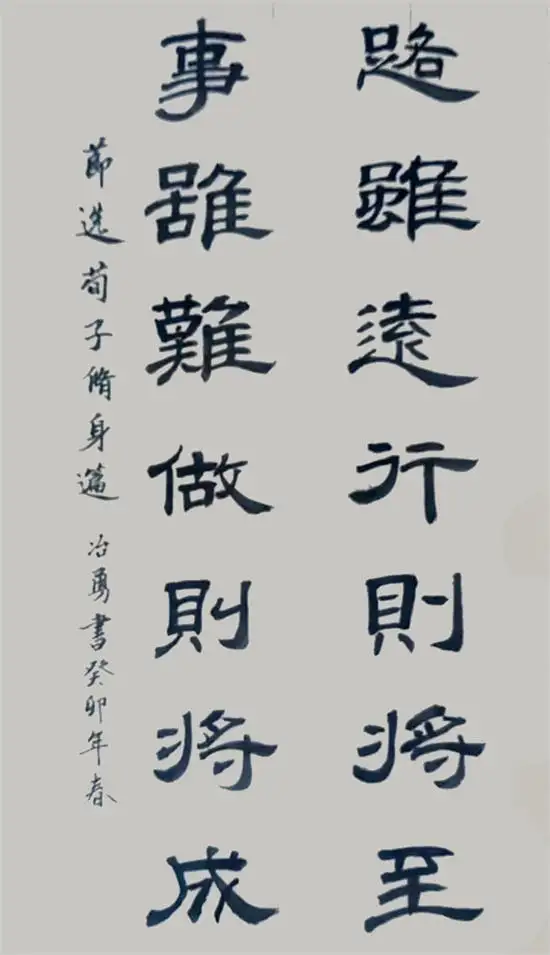 路雖遠行則將至
事雖難做則將成
節选荀子脩身篇 冶勇書癸卯年春